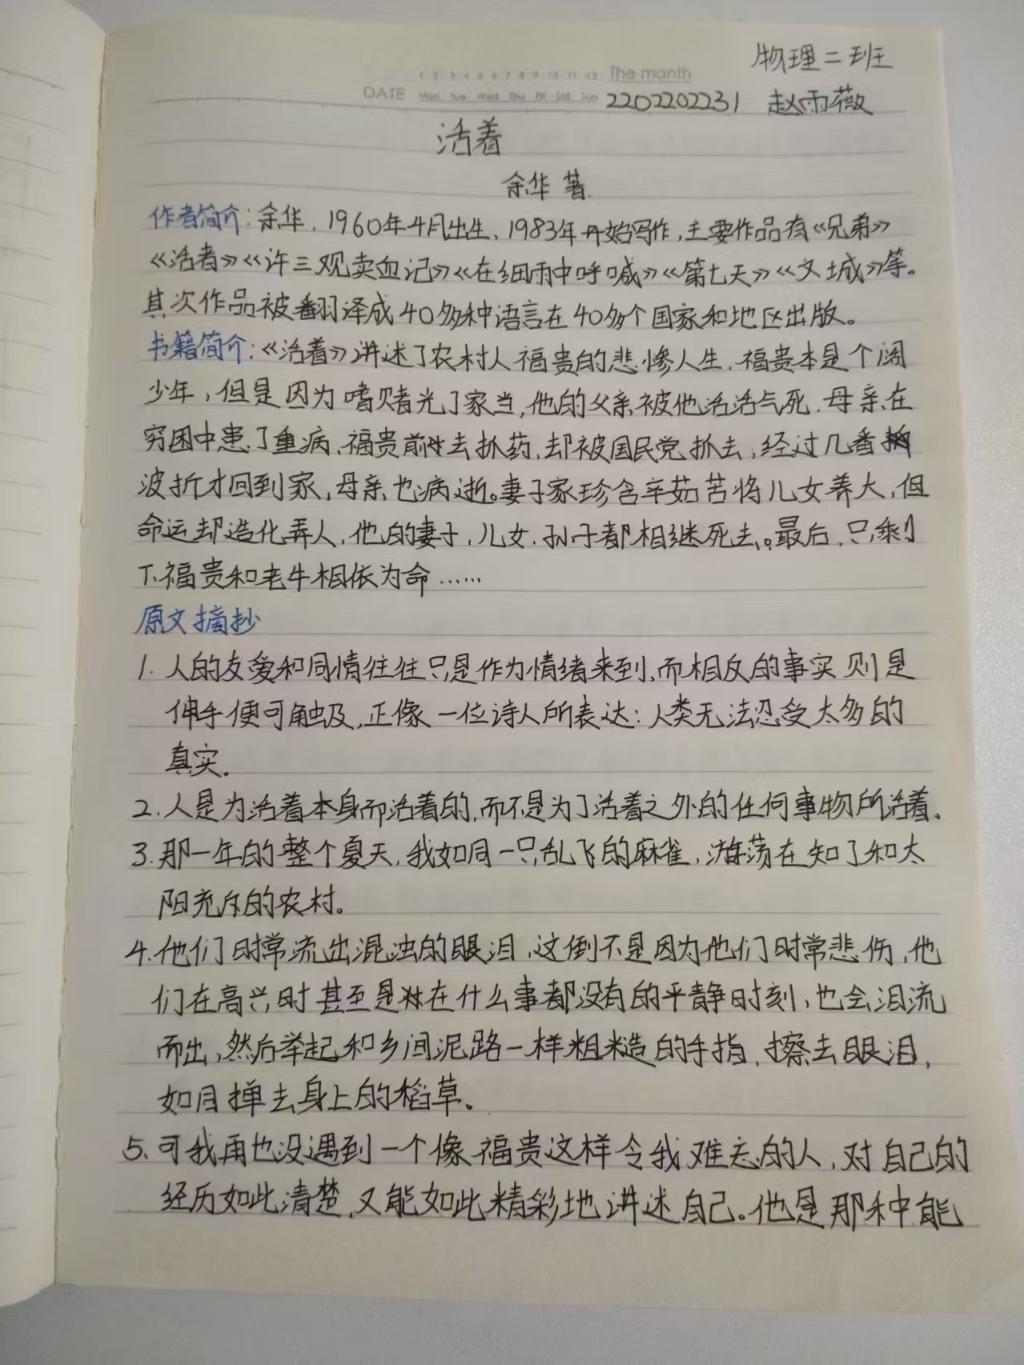 物理二班
1 2 3 4 5 6 7 8 9 10 11 12 The month
DATE Mon Tue Wed Thu Fri Sat Sun 2202202231 赵雨薇
活着
余华 著
作者简介:余华,1960年4月出生,1983年开始写作,主要作品有《兄弟》
《活着》《许三观卖血记》《在细雨中呼喊》《第七天》《文城》等。
其次作品被翻译成40多种语言在40多个国家和地区出版。
书籍简介:《活着》讲述了农村人福贵的悲惨人生,福贵本是个阔
少年,但是因为嗜赌光了家当,他的父亲被他活活气死.母亲在
穷困中患了重病,福贵前去抓药,却被国民党抓去,经过几番
波折才回到家,母亲也病逝。妻子家珍含辛茹苦将儿女养大,但
命运却造化弄人,他的妻子,儿女.孙子都相继死去。最后,只剩
下福贵和老牛相依为命……
原文摘抄
1.人的友爱和同情往往只是作为情绪来到,而相反的事实则是
伸手便可触及,正像一位诗人所表达:人类无法忍受太多的
真实.
2.人是为活着本身而活着的,而不是为了活着之外的任何事物所活着.
3.那一年的整个夏天,我如同一只乱飞的麻雀,游荡在知了和太
阳充斥的农村。
4.他们时常流出混浊的眼泪,这倒不是因为他们时常悲伤,他
们在高兴时甚至是在什么事都没有的平静时刻,也会泪流
而出,然后举起和乡间泥路一样粗糙的手指,擦去眼泪,
如同掸去身上的稻草。
5.可我再也没遇到一个像福贵这样令我难忘的人,对自己的
经历如此清楚,又能如此精彩地讲述自己。他是那种能